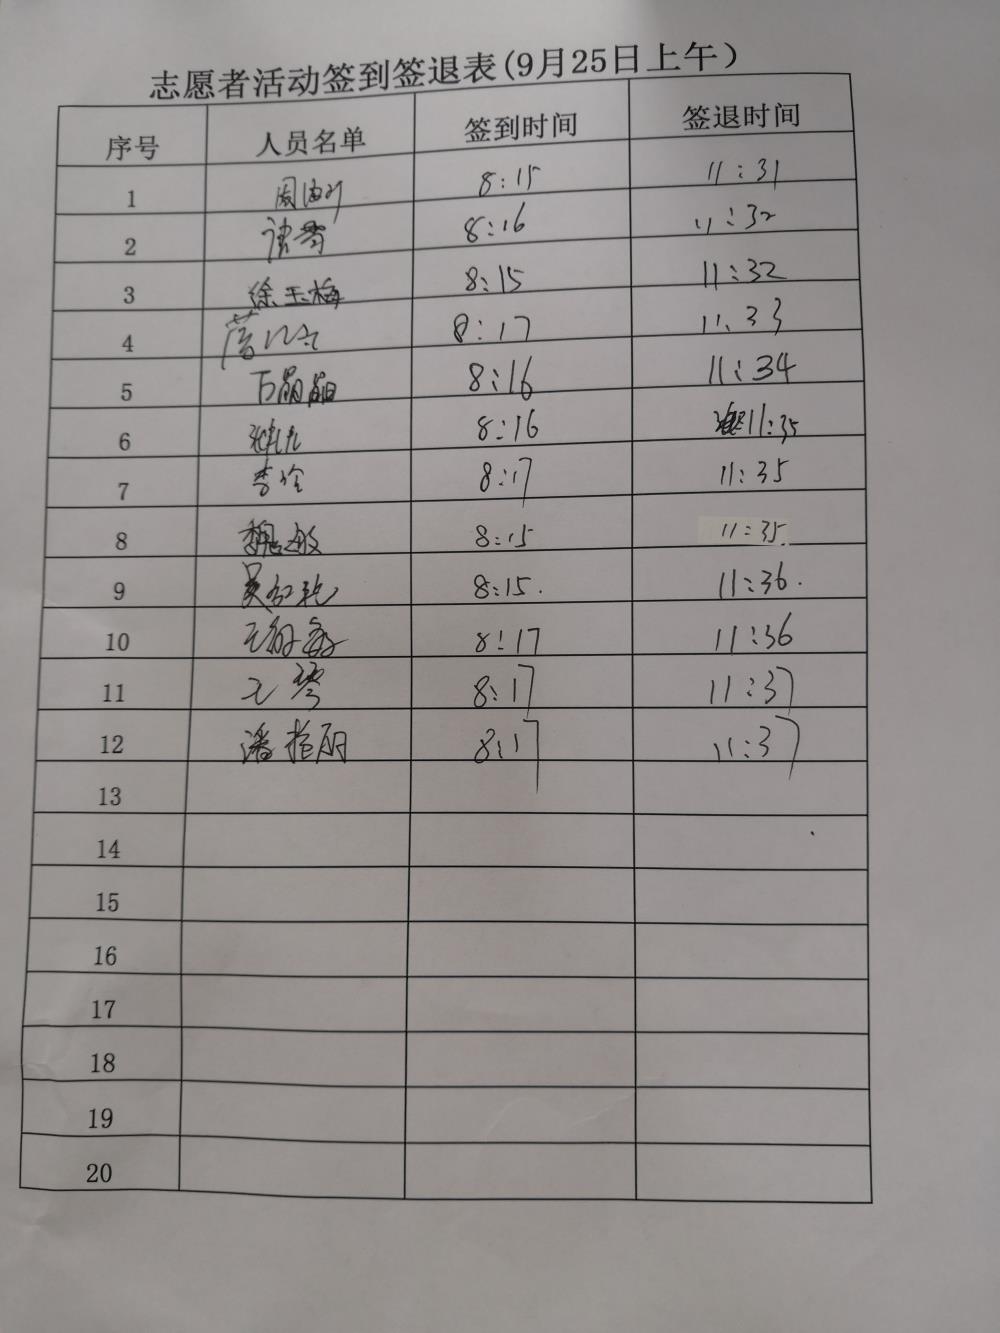 志愿者活动签到签退表(9月25日上午)
序号 人员名单 签到时间 签退时间
1 8:15 11:31
2 8:16 11:32
3 徐玉梅 8:15 11:32
4 8:17 11:33
5 万晶晶 8:16 11:34
6 8:16 11:35
7 李玲 8:17 11:35
8 魏敏 8:15 11:35
9 8:15. 11:36.
10 王敏 8:17 11:36
11 王琴 8:17 11:37
12 潘艳丽 8:17 11:37
13
14
15
16
17
18
19
20